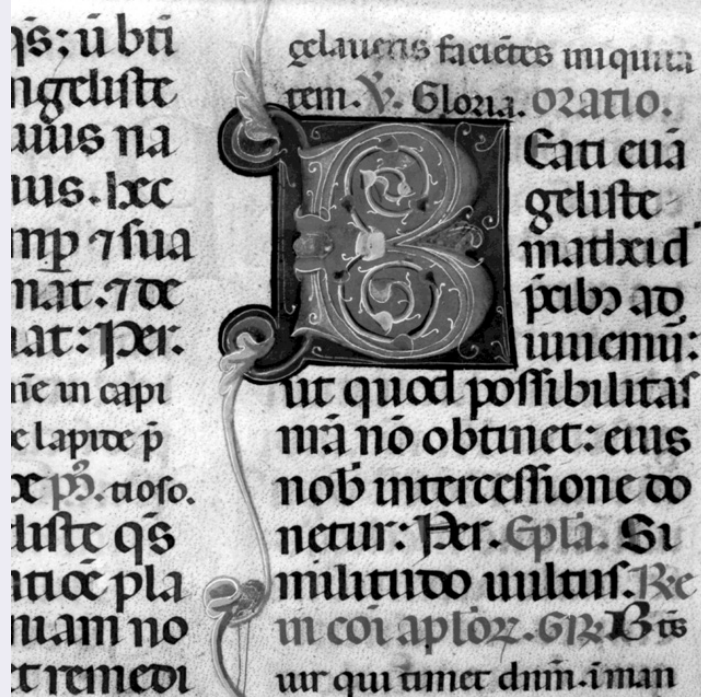 q̄s; ū bt̄i
ngeliste
uius na
ius. hec
mp̱ ⁊ sua
nat. ⁊ de
at: Per.
nē in capi
e lapide p̄
ps̄. tioso.
liste q̄s
atiōe pla
uam no
et remedi
gelaueris faciētes iniquita
tem. V̄. Gloria. oratio.
BEati euā
geliste
mathei d
p̄cibȝ ad
iuuemū:
ut quod possibilitas
mā nō obtinet: eius
nob̄ intercessione do
netur: Per. Epl̄a. Si
militudo uultus. Re
in cōi apl̄oꝝ. GR. Bt̄s
uir qui timet dnm̄. i man